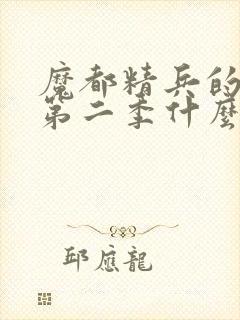 魔都精兵的
第二季什麼
邱應龍